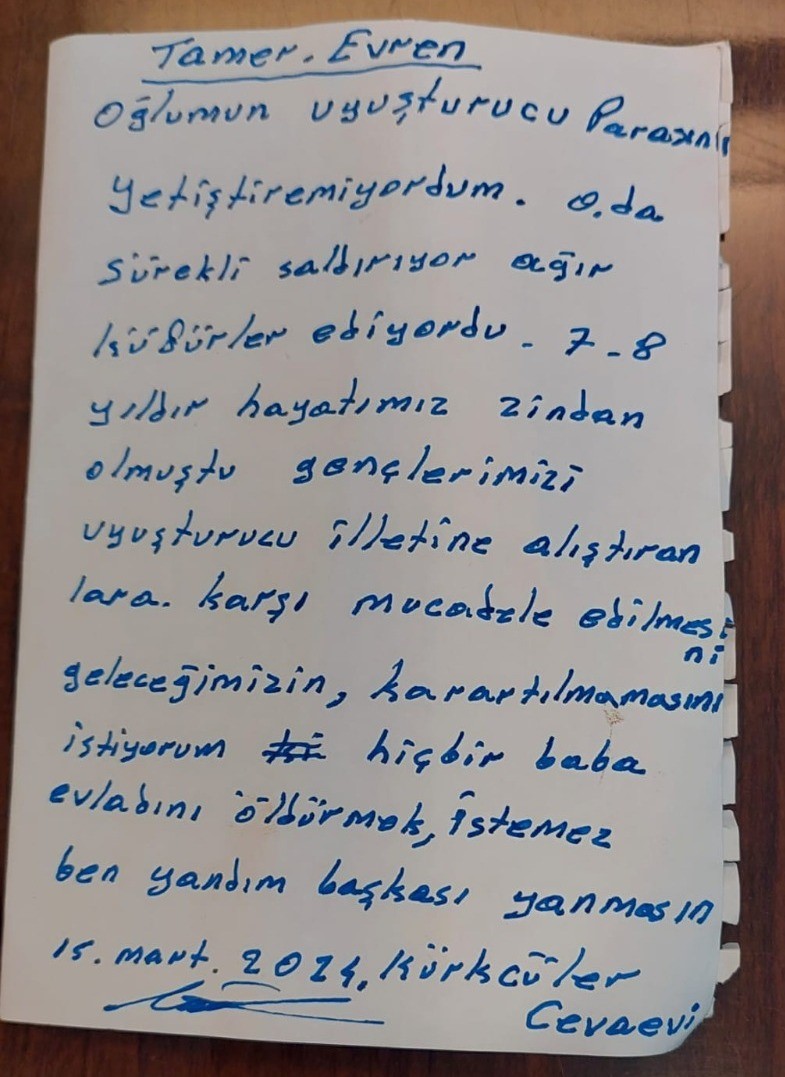 Tamer. Evren
Oğlumun uyuşturucu Parasını
yetiştiremiyordum. o.da
sürekli saldırıyor ağır
küfürler ediyordu. 7-8
yıldır hayatımız zindan
olmuştu gençlerimizi
uyuşturucu illetine alıştıran
lara. karşı mucadele edilmesi
ni
geleceğimizin, karartılmamasını
istiyorum hiçbir baba
evladını öldürmek, istemez
ben yandım başkası yanmasın
15. mart. 2024, Kürkcüler
Cevaevi